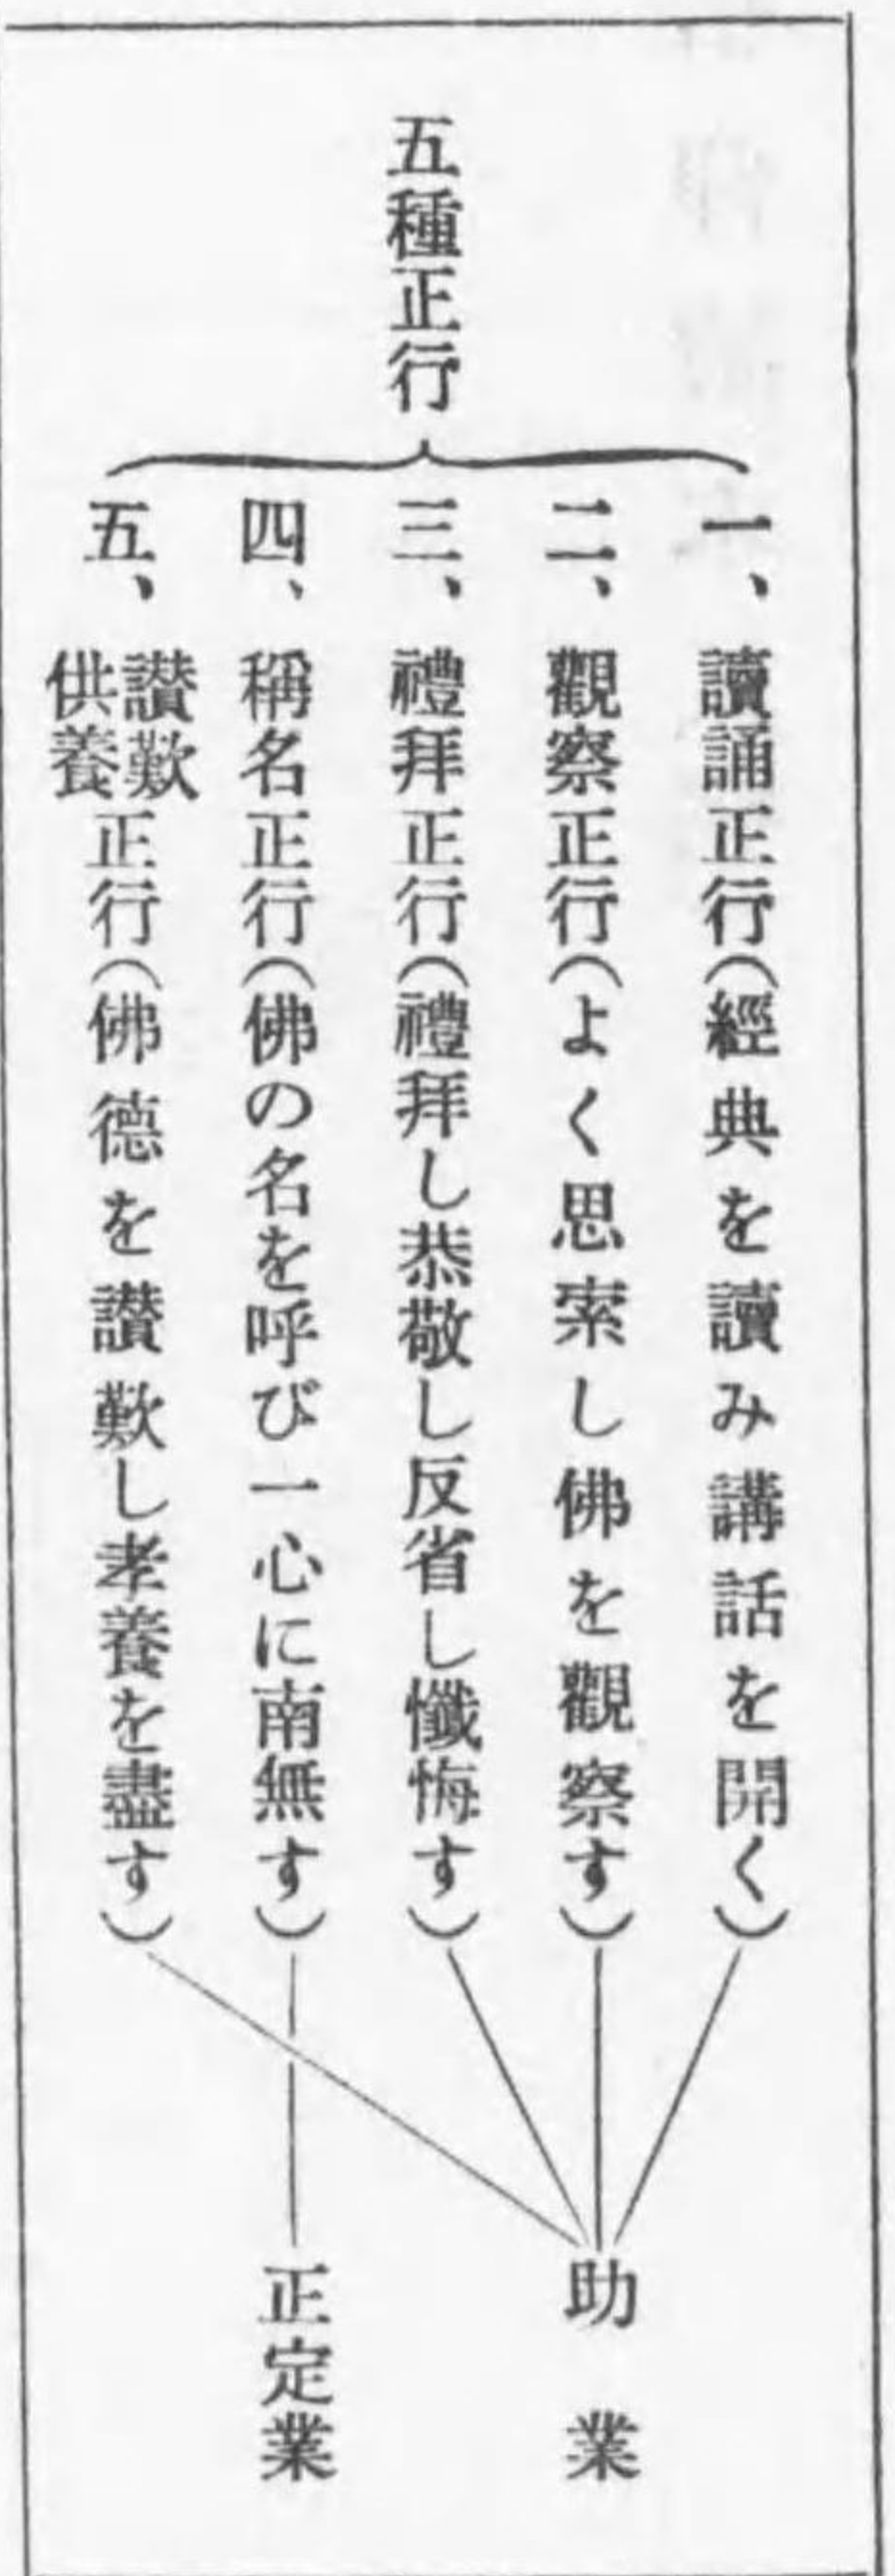 五種正行
一、讀誦正行(經典を讀み講話を開く)
二、觀察正行(よく思索し佛を觀察す)
三、禮拜正行(禮拜し恭敬し反省し懺悔す)
四、稱名正行(佛の名を呼び一心に南無す)
五、讃歎供養正行(佛德を讃歎し孝養を盡す)
助業
正定業